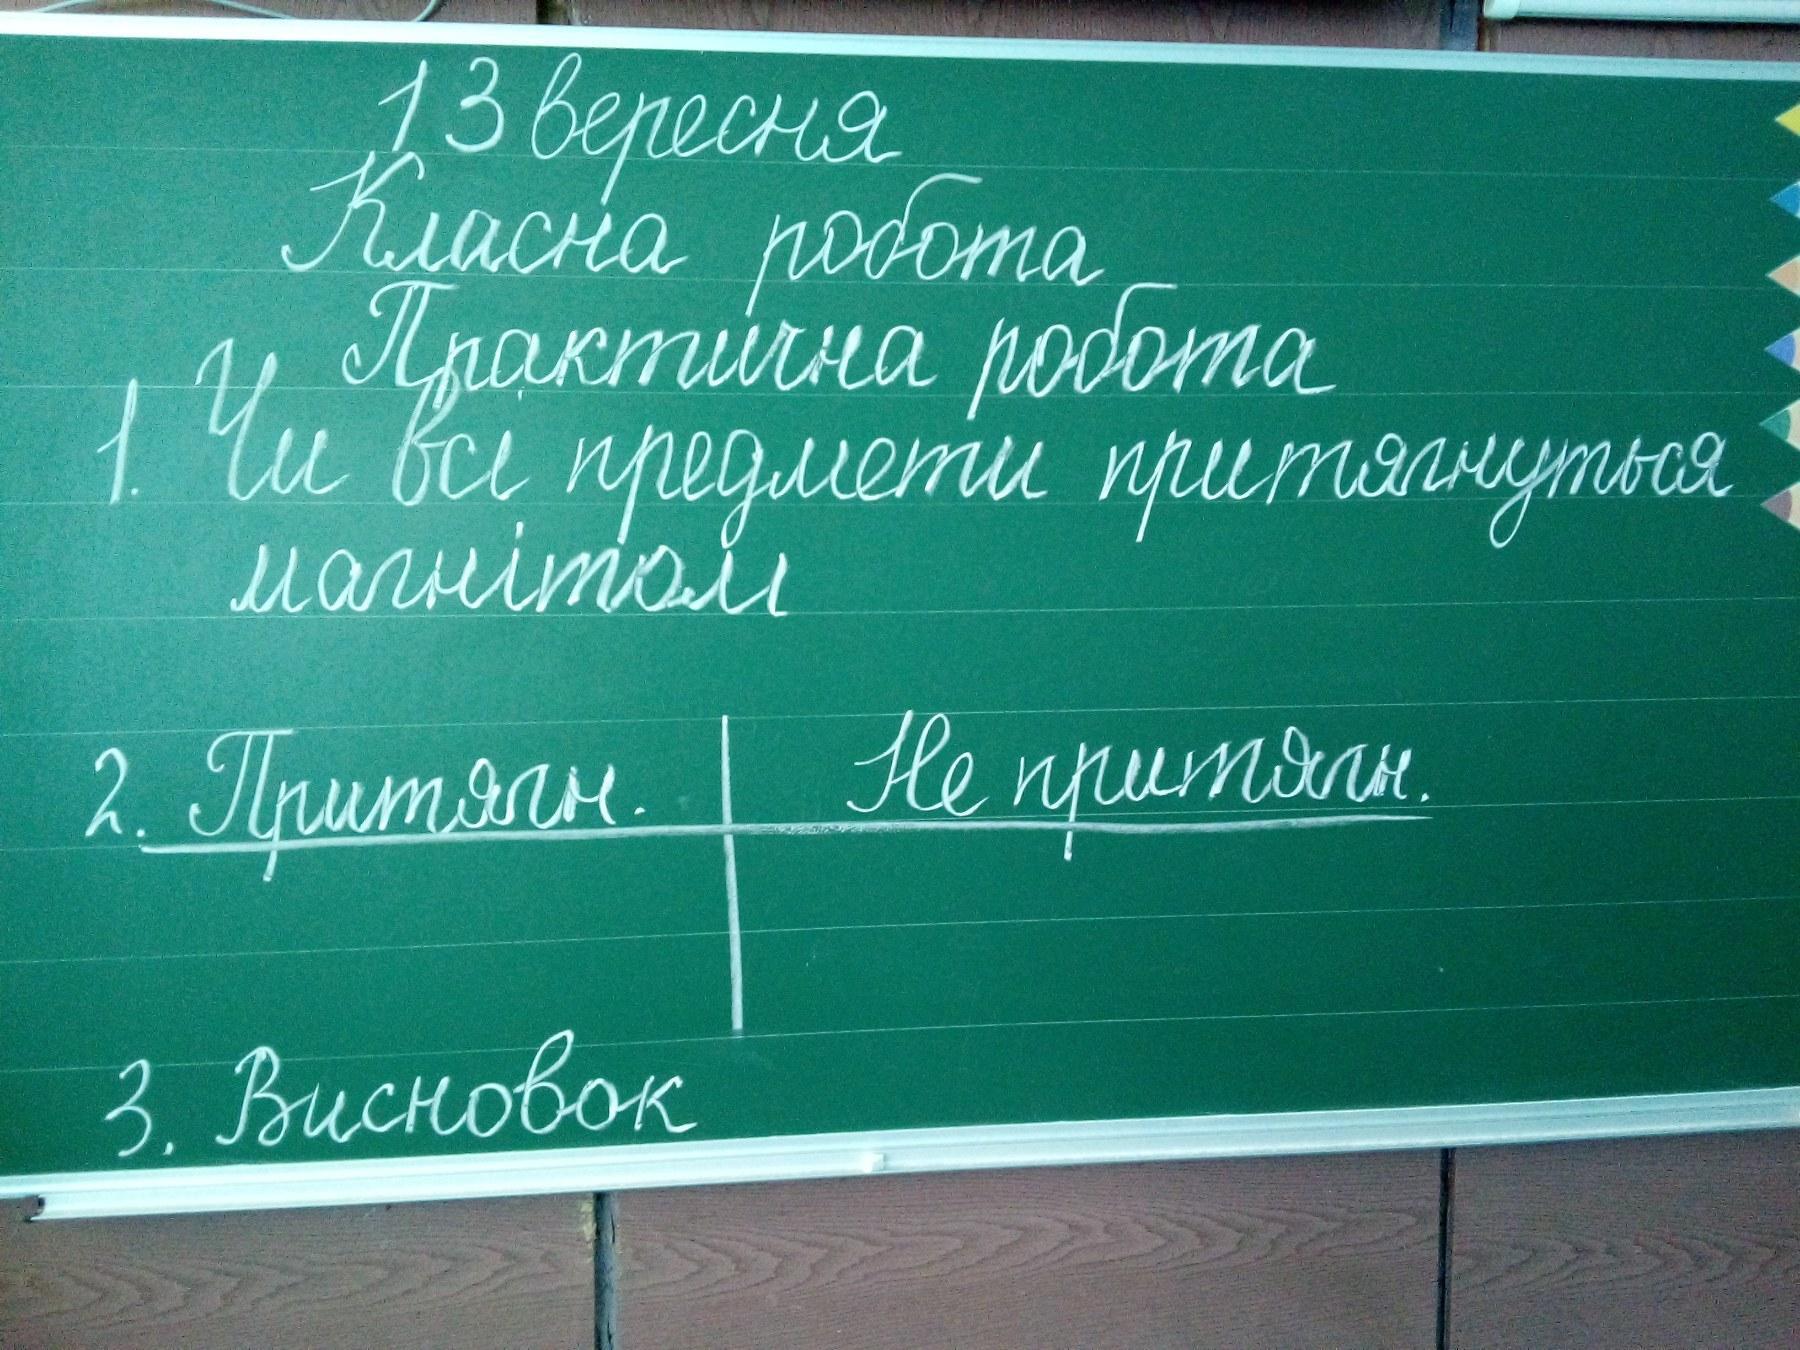 13 вересня
Класна робота
Практична робота
1. Чи всі предмети притягнуться
магнітом
2. Притягн. Не притягн.
3. Висновок